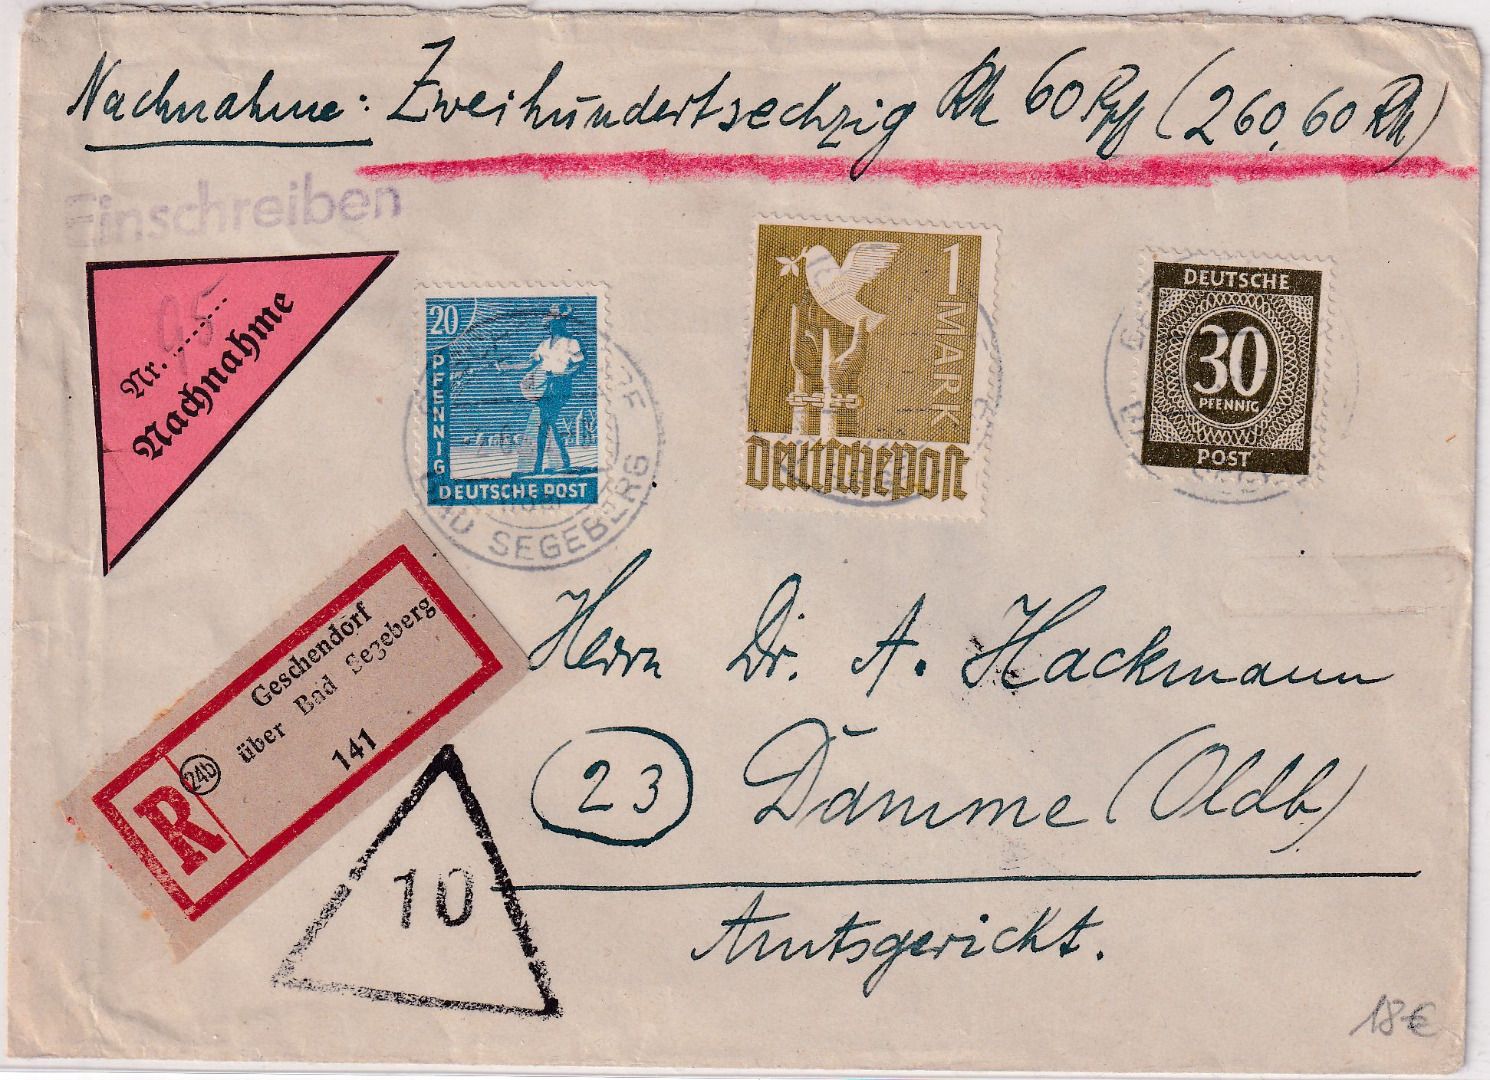 Nachnahme: Zweihundertsechzig RM 60 Rpf (260,60 RM)
Einschreiben
Nr. 95
Nachnahme
20
PFENNIG
DEUTSCHE POST
BAD SEGEBERG
1 MARK
Deutsche Post
DEUTSCHE
30
PFENNIG
POST
Geschendorf
über Bad Segeberg
R 24b
141
Herrn Dr. A. Hackmann
23 Damme (Oldb)
Amtsgericht.
10
18€